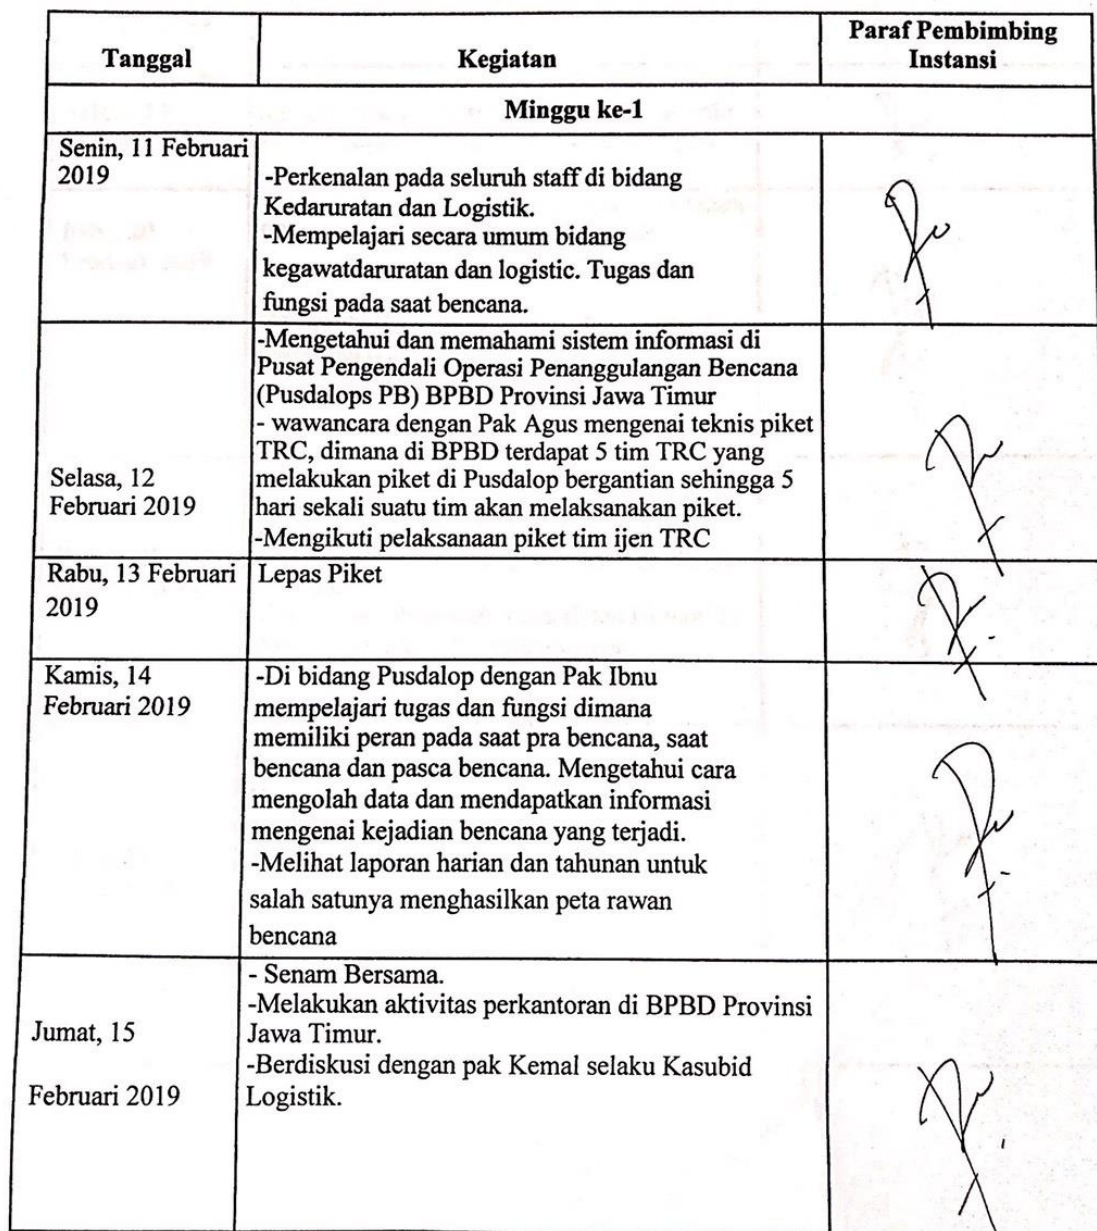 Tanggal
Kegiatan
Paraf Pembimbing
Instansi
Minggu ke-1
Senin, 11 Februari
2019
-Perkenalan pada seluruh staff di bidang
Kedaruratan dan Logistik.
-Mempelajari secara umum bidang
kegawatdaruratan dan logistic. Tugas dan
fungsi pada saat bencana.
Selasa, 12
Februari 2019
-Mengetahui dan memahami sistem informasi di
Pusat Pengendali Operasi Penanggulangan Bencana
(Pusdalops PB) BPBD Provinsi Jawa Timur
- wawancara dengan Pak Agus mengenai teknis piket
TRC, dimana di BPBD terdapat 5 tim TRC yang
melakukan piket di Pusdalop bergantian sehingga 5
hari sekali suatu tim akan melaksanakan piket.
-Mengikuti pelaksanaan piket tim ijen TRC
Rabu, 13 Februari
2019
Lepas Piket
Kamis, 14
Februari 2019
-Di bidang Pusdalop dengan Pak Ibnu
mempelajari tugas dan fungsi dimana
memiliki peran pada saat pra bencana, saat
bencana dan pasca bencana. Mengetahui cara
mengolah data dan mendapatkan informasi
mengenai kejadian bencana yang terjadi.
-Melihat laporan harian dan tahunan untuk
salah satunya menghasilkan peta rawan
bencana
Jumat, 15
Februari 2019
- Senam Bersama.
-Melakukan aktivitas perkantoran di BPBD Provinsi
Jawa Timur.
-Berdiskusi dengan pak Kemal selaku Kasubid
Logistik.